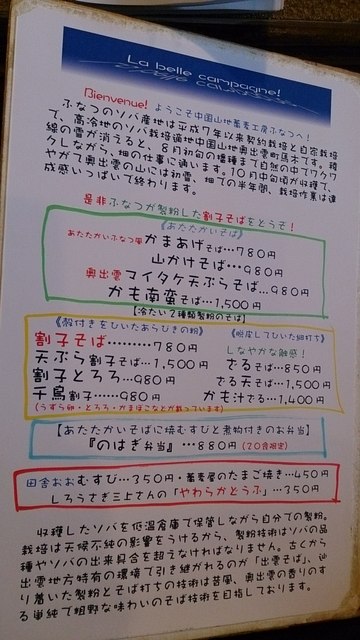 La belle campagne!
Bienvenue! ようこそ中国山地蕎麦工房ふなつへ!
ふなつのソバ産地は平成7年以来契約栽培と自家栽培
で、高冷地のソバ栽培適地中国山地奥出雲町馬木です。種
線の雪が消えると、8月初旬の播種まで自然の中でワクワ
クしながら、畑の仕事に通います。10月中旬頃が収穫で、
やがて奥出雲の山には初雪、畑での半年間、栽培作業は達
成感いっぱいで終わります。
是非ふなつが製粉した割子そばをどうぞ!
《あたたかいそば》
あたたかいふなつ風 かまあげそば…780円
山かけそば…980円
奥出雲マイタケ天ぷらそば…980円
かも南蛮そば…1,500円
【冷たい2種類製粉のそば】
《殻付きをひいたあらびきの粉》
割子そば………780円
天ぷら割子そば…1,500円
割子とろろ…980円
千鳥割子……980円
(うずら卵・とろろ・かまぼこなどが載っています)
《脱皮してひいた細打ち》
しなやかな触感!
ざるそば…850円
ざる天そば…1,500円
かも汁ざる…1,400円
【あたたかいそばに焼むすびと煮物付きのお弁当】
『のはぎ弁当』…880円(20食限定)
田舎おおむすび…350円・蕎麦屋のたまご焼き…450円
しろうさぎ三上さんの「やわらかとうふ」…350円
収穫したソバを低温倉庫で保管しながら自分での製粉。
栽培は天候不純の影響をうけるから、製粉技術はソバの品
種やソバの出来具合を超えなければなりません。古くから
出雲地方特有の環境で引き継がれるのが「出雲そば」、辿
り着いた製粉とそば打ちの技術は昔風、奥出雲の香りのす
る単純で粗野な味わいのそば技術を目指しております。